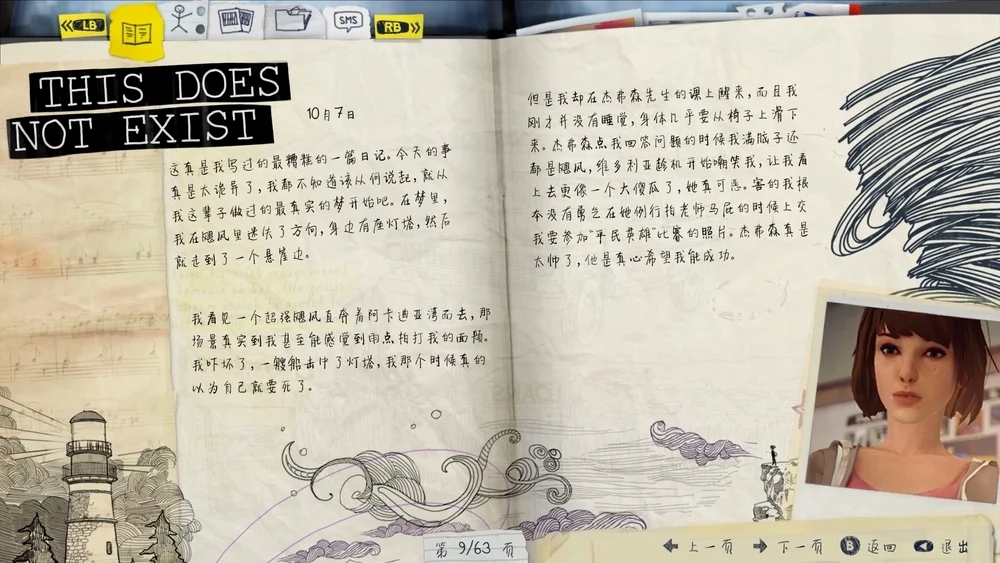 LB
SMS
RB
THIS DOES
NOT EXIST
10月7日
这真是我写过的最糟糕的一篇日记。今天的事
真是太诡异了，我都不知道该从何说起，就从
我这辈子做过的最真实的梦开始吧。在梦里，
我在飓风里迷失了方向，身边有座灯塔，然后
就走到了一个悬崖边。
我看见一个超强飓风直奔着阿卡迪亚湾而去，那
场景真实到我甚至能感觉到雨点拍打我的面颊。
我吓坏了，一艘船击中了灯塔，我那个时候真的
以为自己就要死了。
但是我却在杰弗森先生的课上醒来，而且我
刚才并没有睡觉，身体几乎要从椅子上滑下
来。杰弗森点我回答问题的时候我满脑子还
都是飓风，维多利亚趁机开始嘲笑我，让我看
上去更像一个大傻瓜了，她真可恶。害的我根
本没有勇气在她例行拍老师马屁的时候上交
我要参加“平民英雄”比赛的照片。杰弗森真是
太帅了，他是真心希望我能成功。
第 9/63 页
上一页 下一页 B 返回 退出